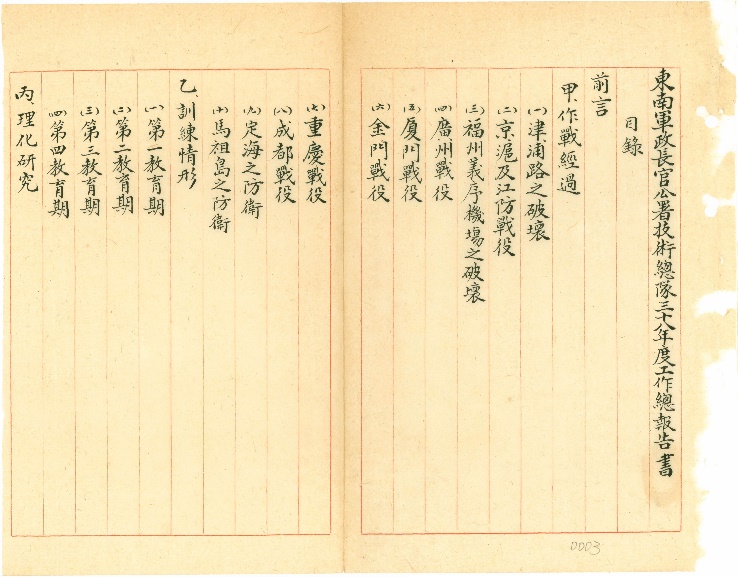 東南軍政長官公署技術總隊三十八年度工作總報告書
目錄
前言
甲、作戰經過
(一)津浦路之破壞
(二)京滬及江防戰役
(三)福州義序機場之破壞
(四)廣州戰役
(五)厦門戰役
(六)金門戰役
(七)重慶戰役
(八)成都戰役
(九)定海之防衛
(十)馬祖島之防衛
乙、訓練情形
(一)第一教育期
(二)第二教育期
(三)第三教育期
(四)第四教育期
丙、理化研究
0003